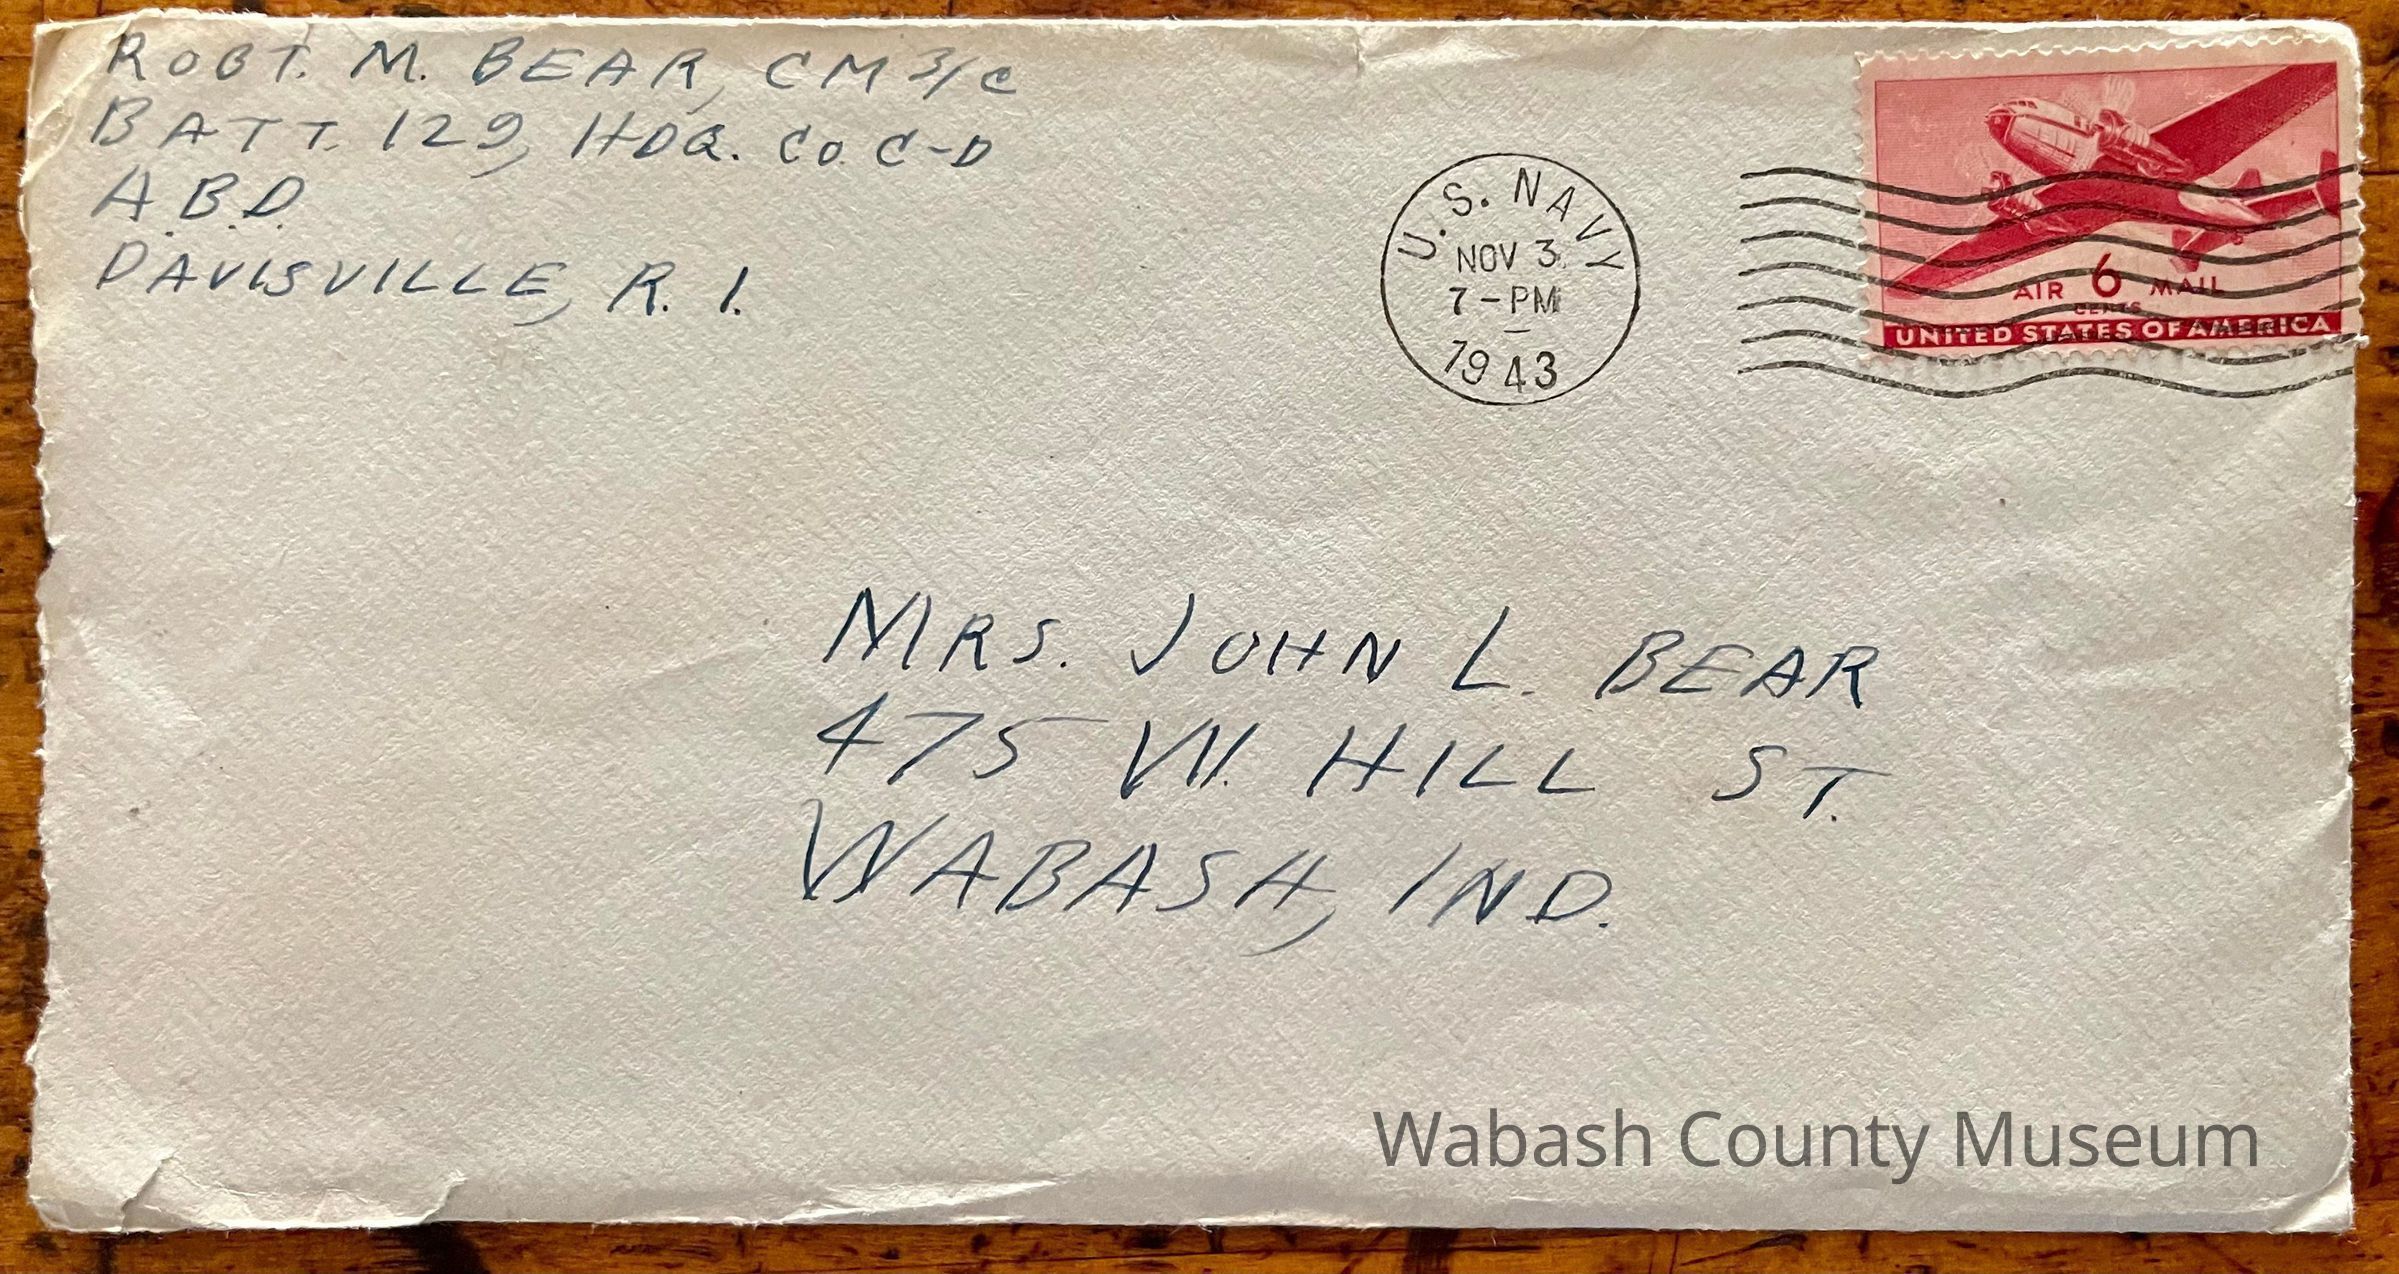 ROBT. M. BEAR, CM 3/C
BATT. 129, HDQ. CO. C-D
A.B.D.
DAVISVILLE, R. I.
U.S. NAVY
NOV 3
7-PM
1943
AIR 6 MAIL
CENTS
UNITED STATES OF AMERICA
MRS. JOHN L. BEAR
475 W. HILL ST.
WABASH, IND.
Wabash County Museum